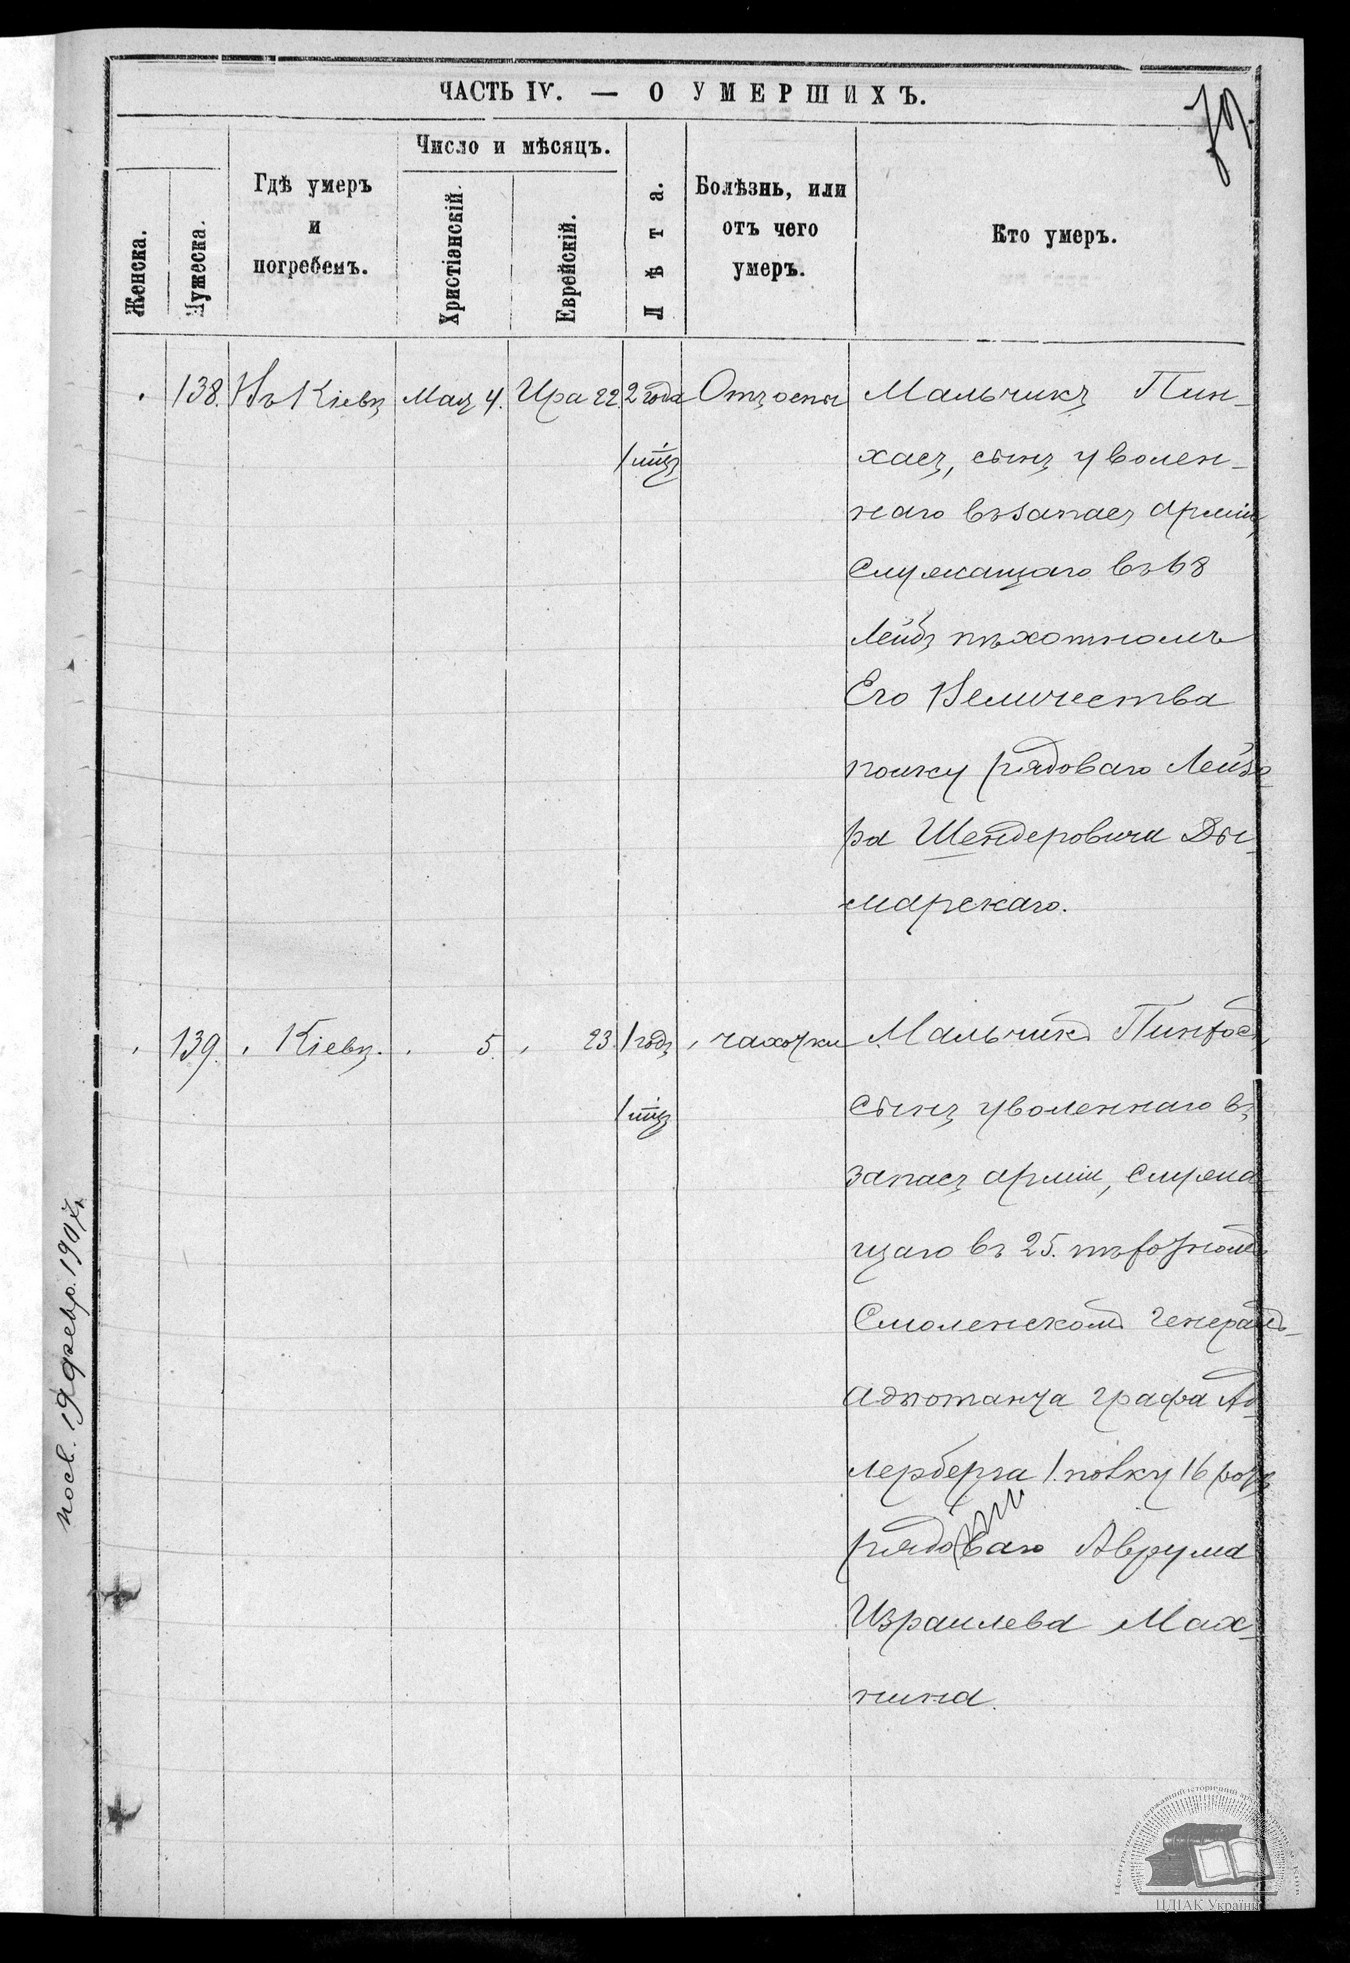 ЧАСТЬ IV. — О УМЕРШИХЪ.
Женска.
Мужеска.
Гдѣ умеръ
и
погребенъ.
Число и мѣсяцъ.
Христіанскій.
Еврейскій.
Лѣта.
Болѣзнь, или
отъ чего
умеръ.
Кто умеръ.
138. Въ Кіевѣ Мая 4. Ира 22. 2 года Отъ оспы Мальчикъ Пин-
1 мцъ хасъ, сынъ уволен-
наго въ запасъ арміи,
служащаго въ 68
Лейбъ пѣхотномъ
Его Величества
полку рядоваго Лейзе
ра Шендеровича Ды-
марскаго.
139. Кіевѣ. 5. 23. 1 годъ чахотки Мальчикъ Пинхосъ,
1 мцъ сынъ уволеннаго въ
запасъ арміи, служа
щаго въ 25. пѣхотномъ
Смоленскомъ генералъ-
адъютанта графа Ад
лерберга 1. полку 16 роты
рядоваго Аврума
Израилева Мах-
нина.
посв. 19 февр. 1907 г.
ЦДІАК України